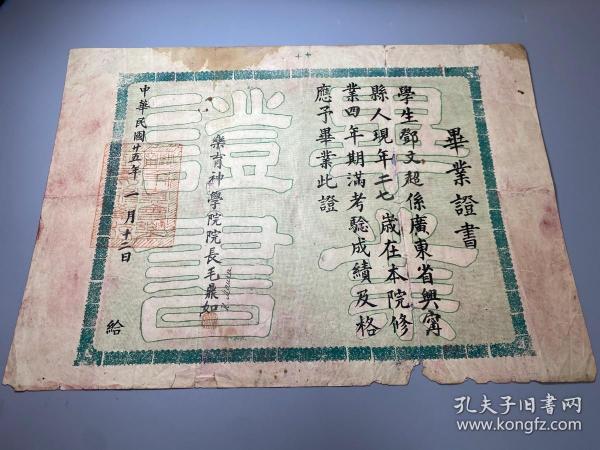 畢業證書
學生鄧文超係廣東省興甯
縣人現年二七歲在本院修
業四年期滿考驗成績及格
應予畢業此證
樂育神學院院長毛鼎如
中華民國廿五年一月十二日
給
畢業
證書
孔夫子旧书网
www.kongfz.com